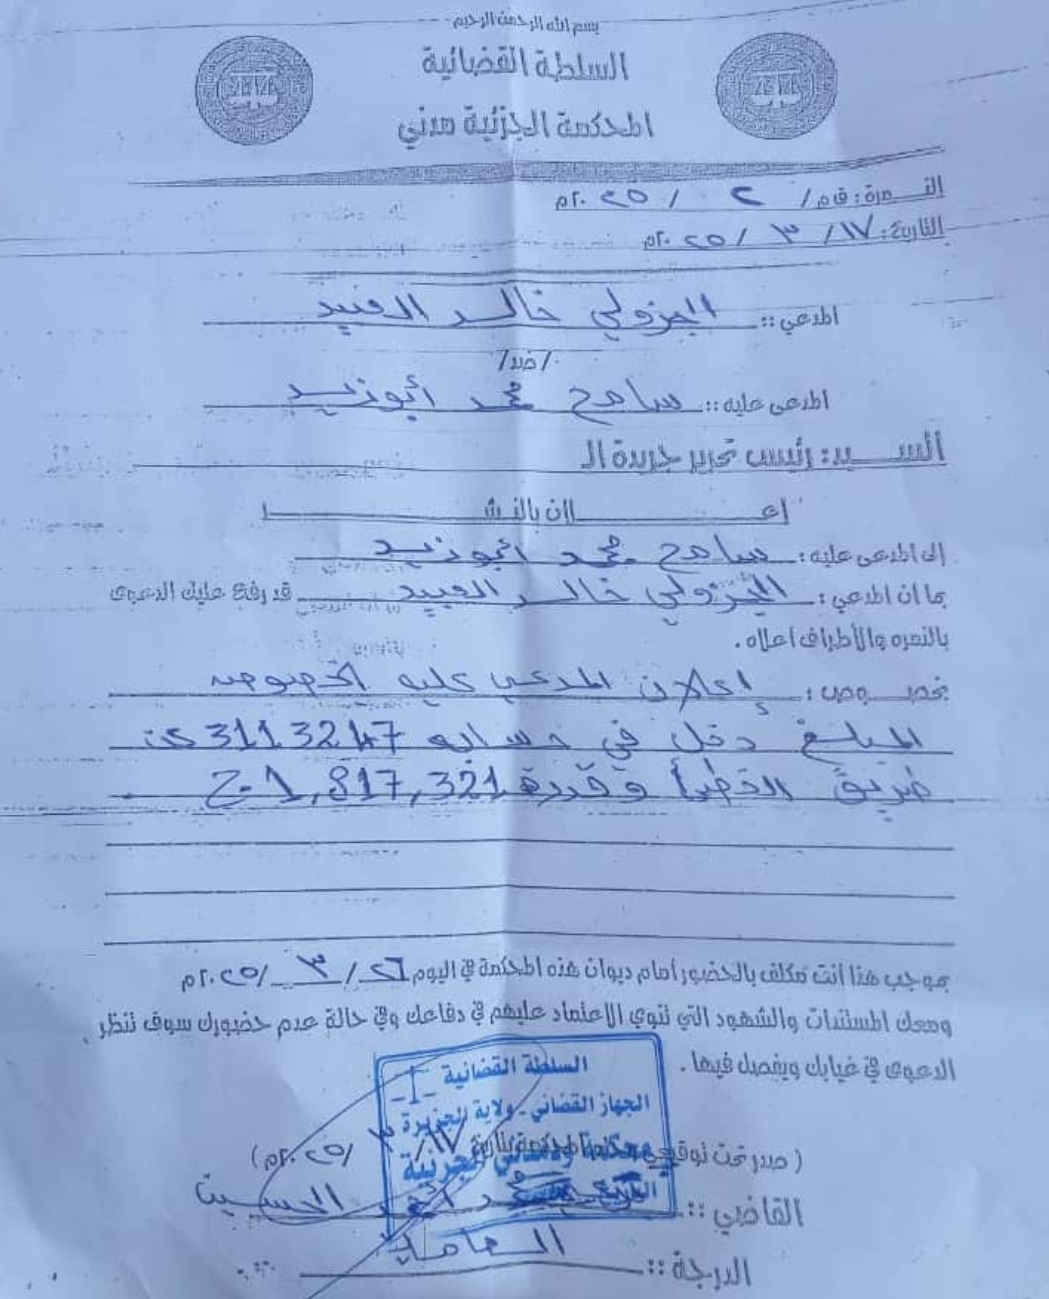 بسم الله الرحمن الرحيم
السلطة القضائية
المحكمة الجزئية مدني
النمرة: ق م / ٢ / ٢٠٢٥م
التاريخ: ١٧ / ٣ / ٢٠٢٥م
المدعي :: الجزولي خالد العبيد
/ضد/
المدعى عليه :: سامح محمد أبوزيد
السيد: رئيس تحرير جريدة الـ
إعلان بالنشر
إلى المدعى عليه: سامح محمد ابوزيد
بما ان المدعي: الجزولي خالد العبيد قد رفع عليك الدعوى
بالنمره والأطراف اعلاه.
بخصوص: إعلان المدعي عليه بخصوص
المبلغ دخل في حسابه 3113247 عن
طريق الخطأ وقدره 1,817,321 ج
بموجب هذا أنت مكلف بالحضور أمام ديوان هذه المحكمة في اليوم ٢٦ / ٣ / ٢٠٢٥م
ومعك المستندات والشهود التي تنوي الاعتماد عليهم في دفاعك وفي حالة عدم حضورك سوف تنظر
الدعوى في غيابك ويفصل فيها.
السلطة القضائية
الجهاز القضائي - ولاية الجزيرة
محكمة ودمدني الجزئية
(صدر تحت توقيعي وختم المحكمة بتاريخ ١٧ / ٣ / ٢٠٢٥م)
القاضي :: محمد
الدرجة ::